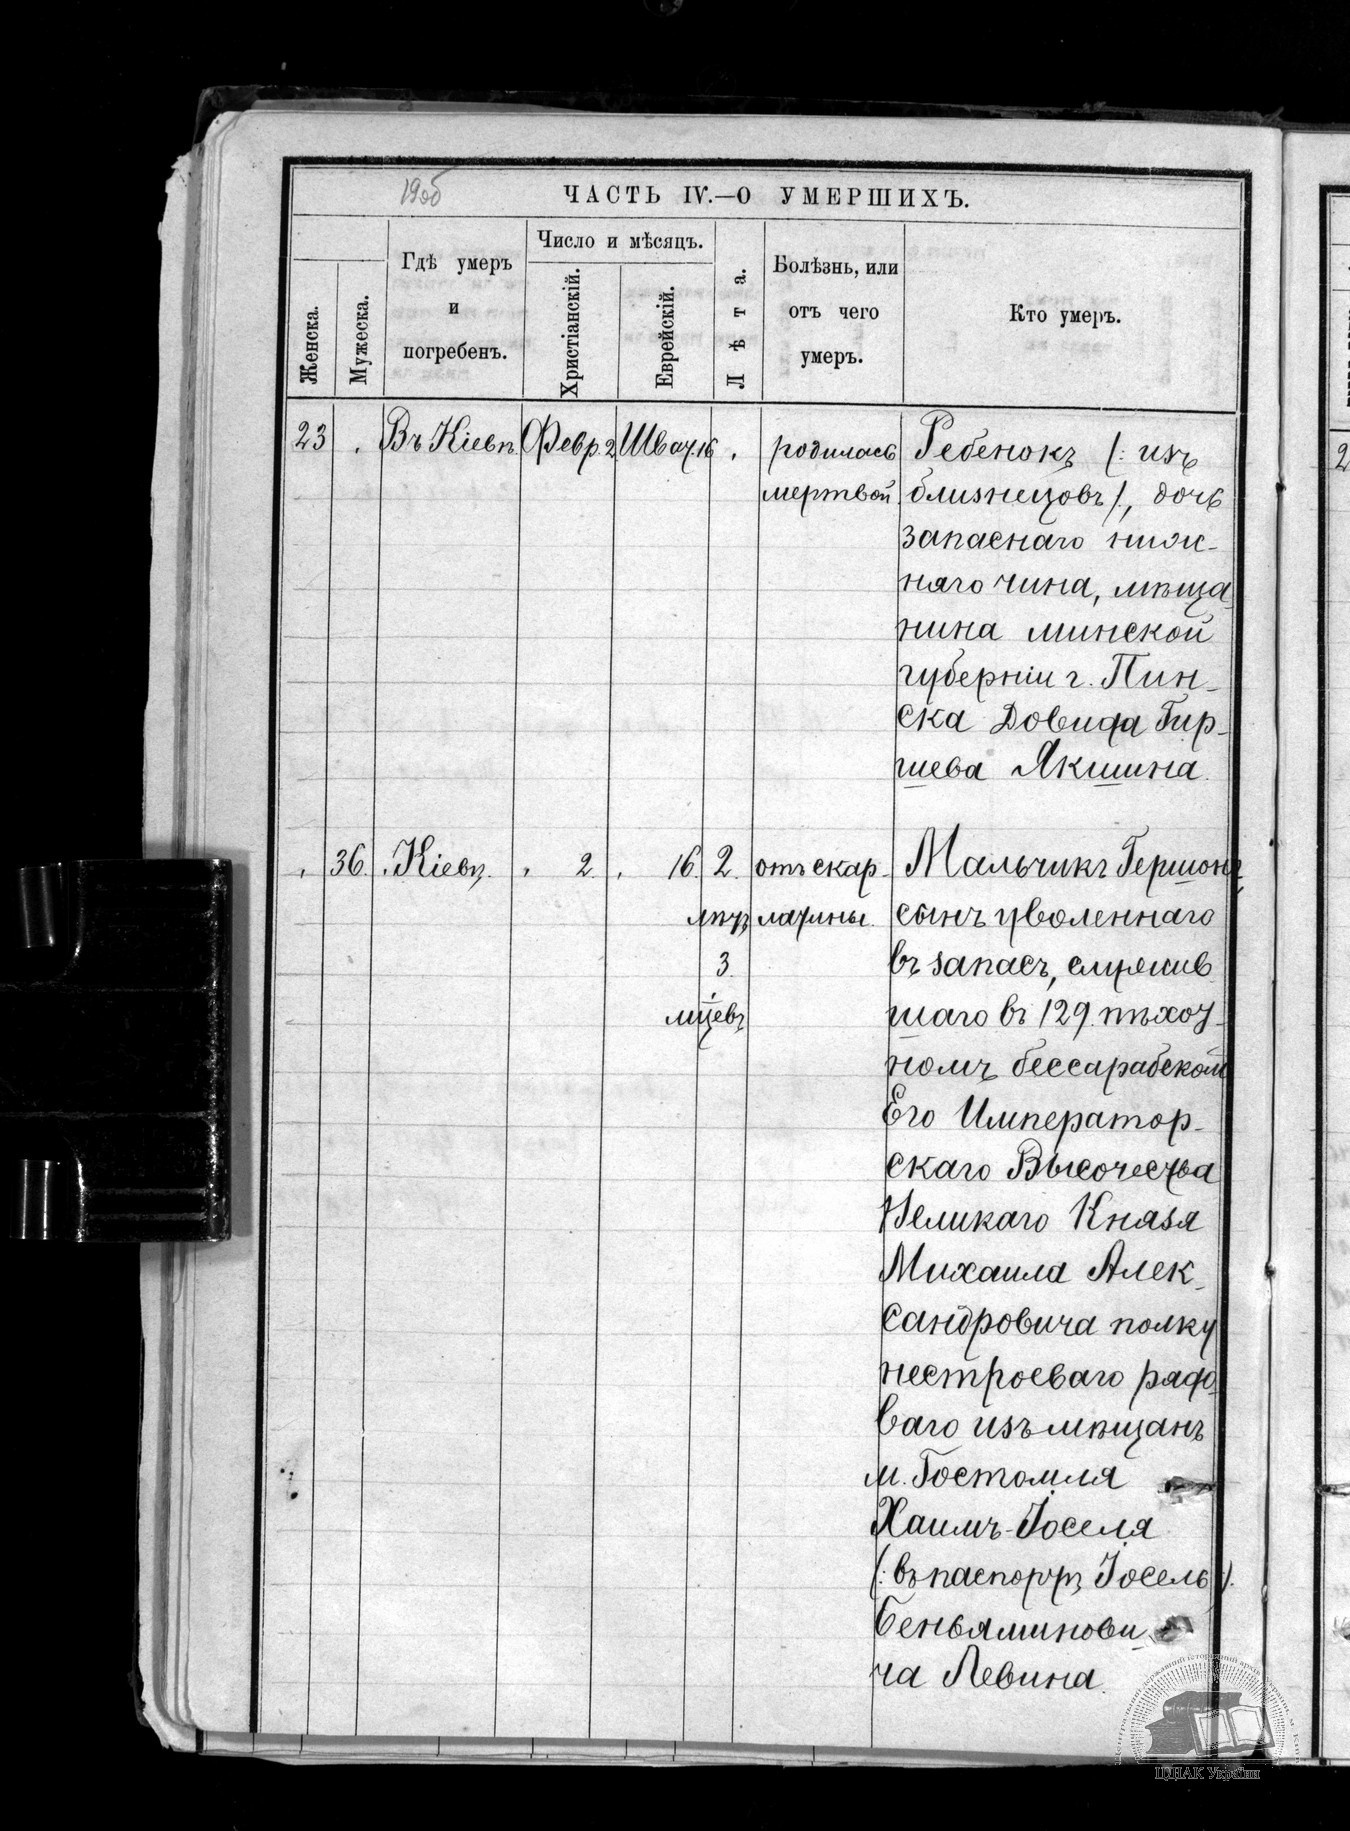 1906
ЧАСТЬ IV.—О УМЕРШИХЪ.
Женска.
Мужеска.
Гдѣ умеръ
и
погребенъ.
Число и мѣсяцъ.
Христіанскій.
Еврейскій.
Лѣта.
Болѣзнь, или
отъ чего
умеръ.
Кто умеръ.
23 Въ Кіевѣ Февр. 2 Шват. 16 родилась Ребенокъ (: изъ
мертвой близнецовъ), дочь
запаснаго ниж-
няго чина, мѣща
нина минской
губерніи г. Пин-
ска Довида Гир-
шева Якшина.
36. Кіевѣ. 2. 16. 2. отъ скар- Мальчикъ Гершонъ,
лѣтъ латины. сынъ уволеннаго
3. въ запасъ, служив
м̅цевъ шаго въ 129. пѣхот-
номъ бессарабскомъ
Его Император-
скаго Высочества
Великаго Князя
Михаила Алек-
сандровича полку
нестроеваго рядо
ваго изъ мѣщанъ
м. Гостомля
Хаимъ-Іоселя
(: въ паспортѣ Іосель :).
Беньяминови
ча Левина.
ЦДІАК України